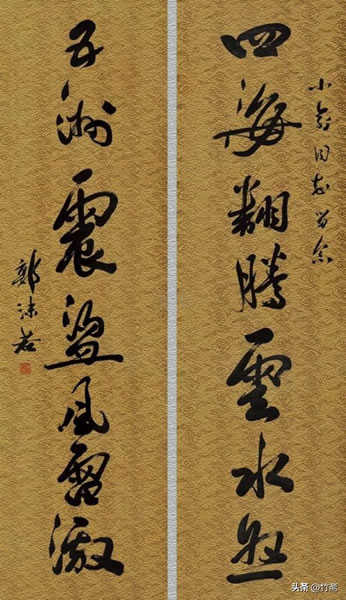 小同志留念
四海翻騰雲水怒
五洲震盪風雷激
郭沫若
头条 @竹斋